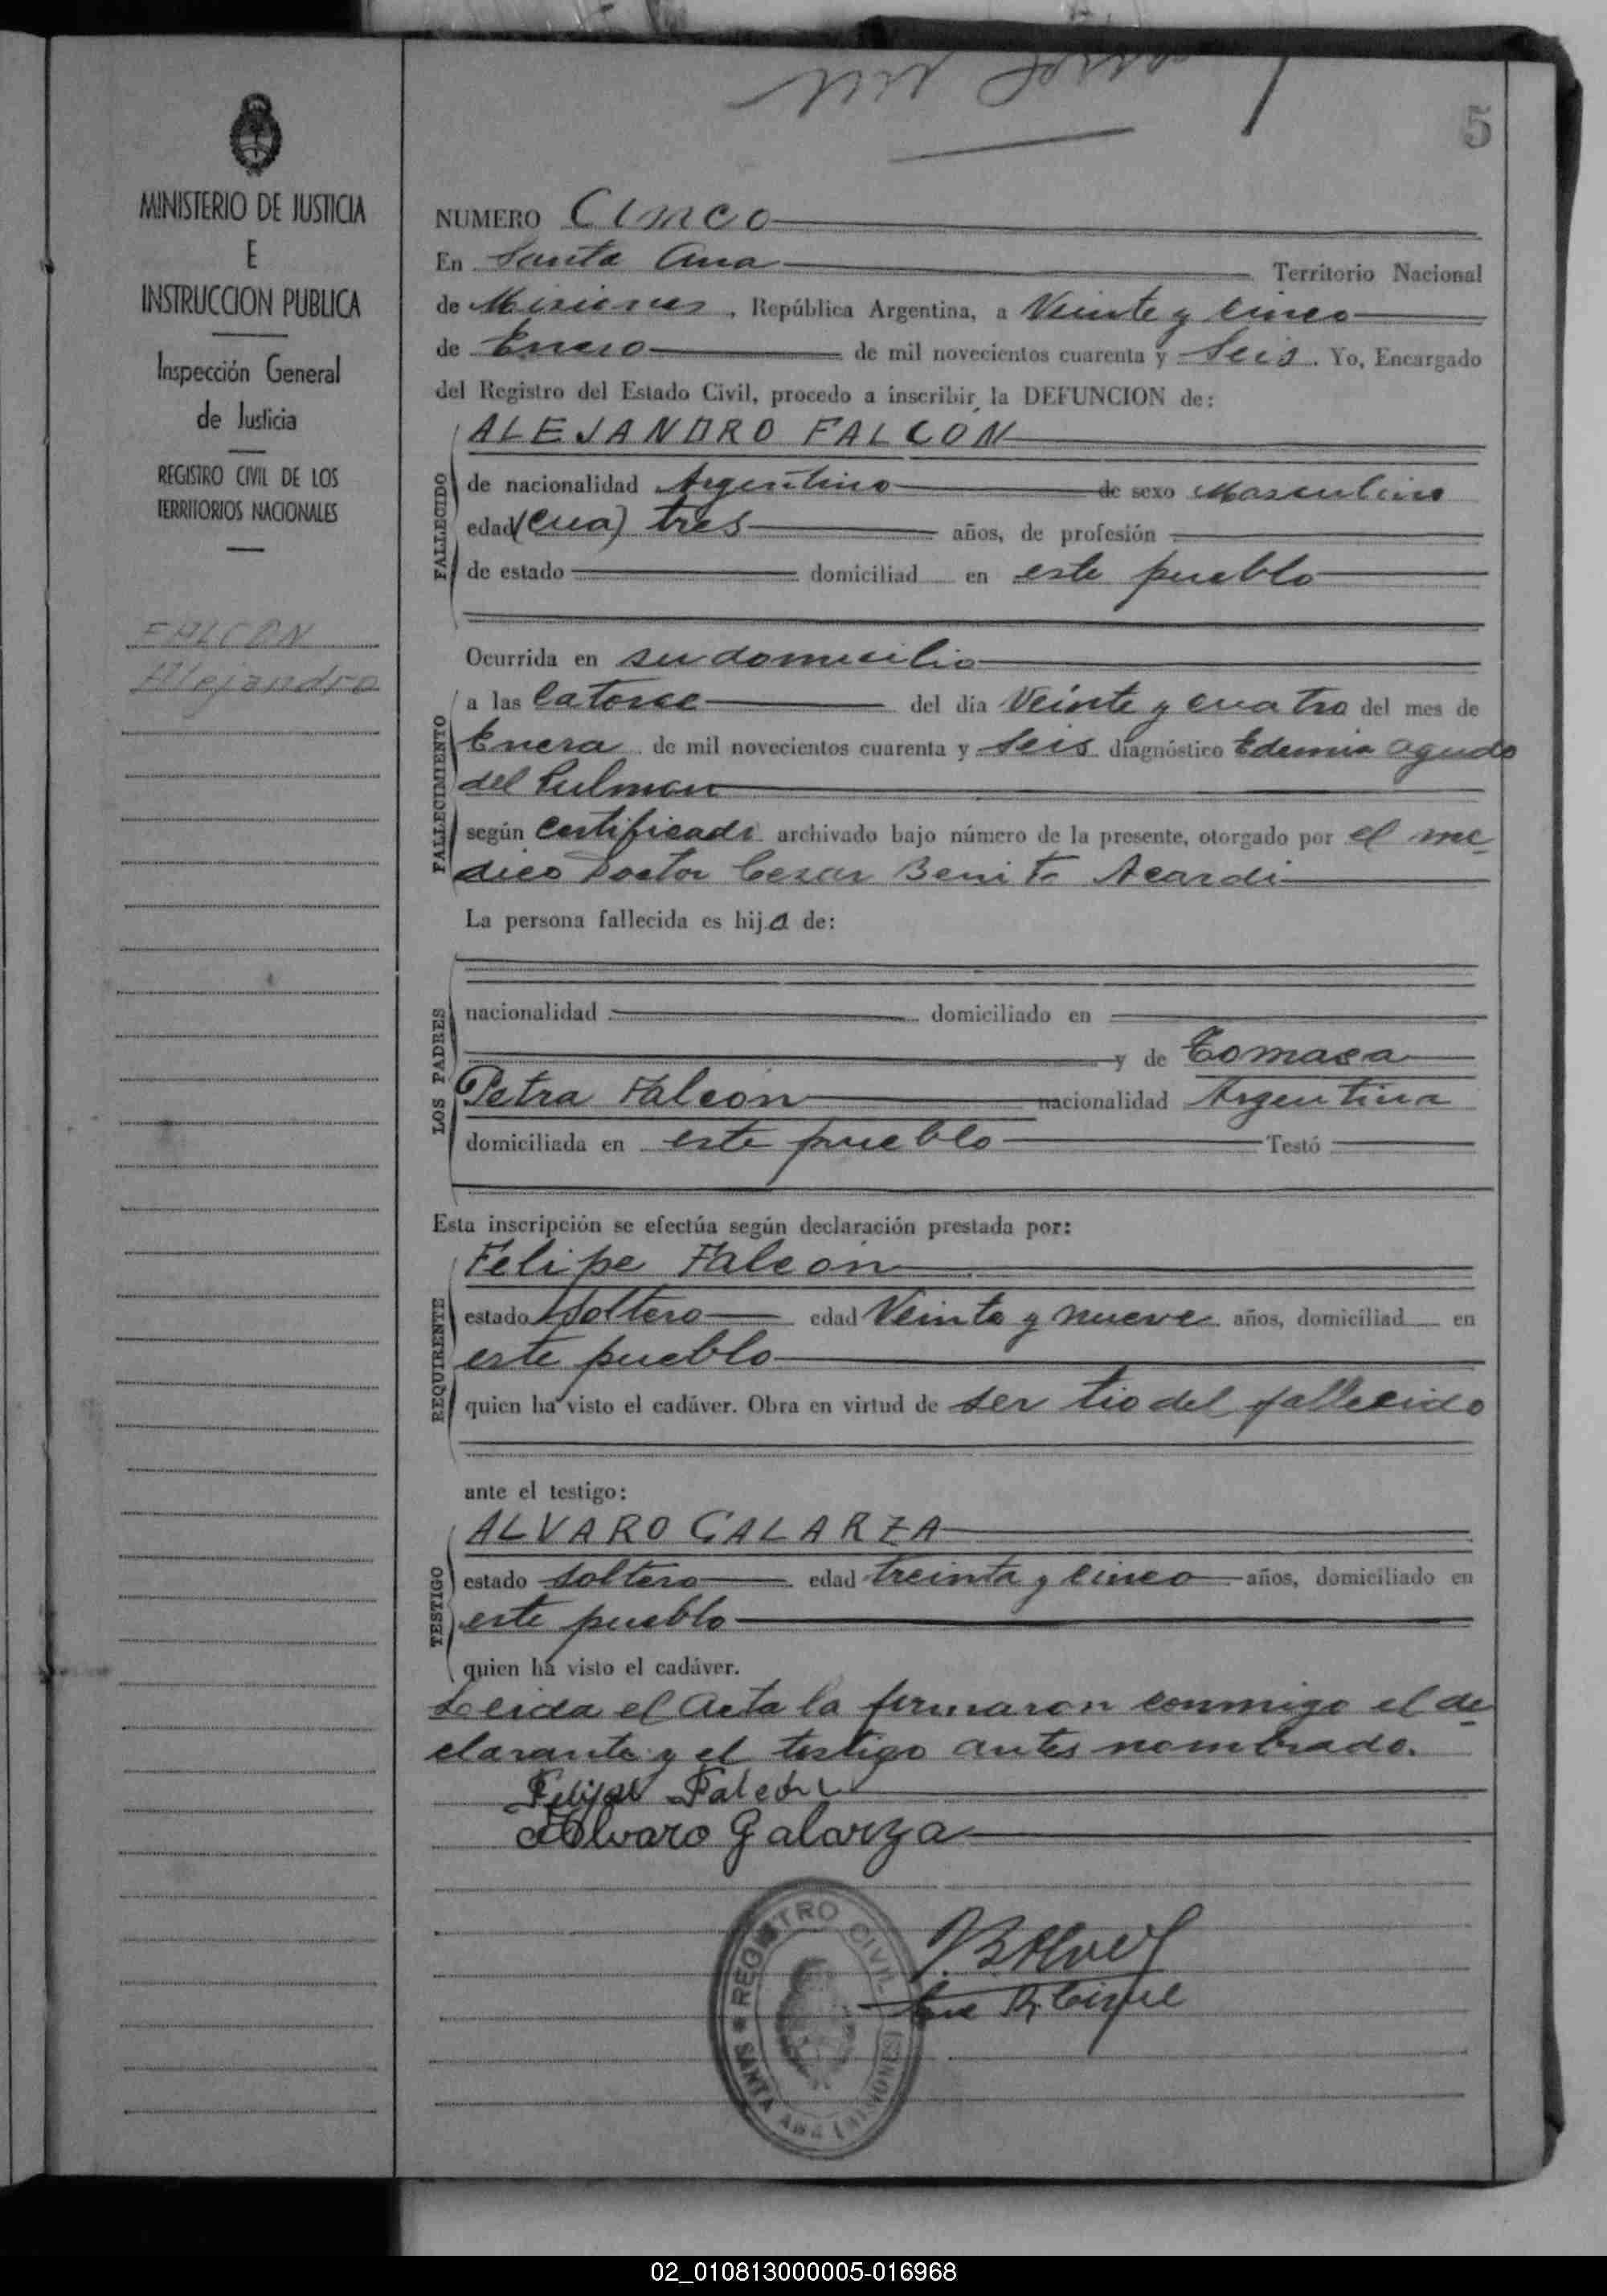 5
MINISTERIO DE JUSTICIA
E
INSTRUCCION PUBLICA
Inspección General
de Justicia
REGISTRO CIVIL DE LOS
TERRITORIOS NACIONALES
FALCON
Alejandro
NUMERO Cinco
En Santa Ana Territorio Nacional
de Misiones, República Argentina, a Veinte y cinco
de Enero de mil novecientos cuarenta y Seis. Yo, Encargado
del Registro del Estado Civil, procedo a inscribir la DEFUNCION de:
ALEJANDRO FALCÓN
FALLECIDO
de nacionalidad Argentino de sexo Masculino
edad tres años, de profesión
de estado domiciliad en este pueblo
Ocurrida en su domicilio
FALLECIMIENTO
a las Catorce del día Veinte y cuatro del mes de
Enero de mil novecientos cuarenta y Seis diagnóstico Edemia agudo
del Pulmon
según Certificado archivado bajo número de la presente, otorgado por el me-
dico Doctor Cesar Benito Acardi
La persona fallecida es hijo de:
LOS PADRES
nacionalidad domiciliado en
y de Tomasa
Petra Falcón nacionalidad Argentina
domiciliada en este pueblo Testó
Esta inscripción se efectúa según declaración prestada por:
REQUIRENTE
Felipe Falcón
estado Soltero edad Veinte y nueve años, domiciliad en
este pueblo
quien ha visto el cadáver. Obra en virtud de ser tio del fallecido
ante el testigo:
TESTIGO
ALVARO GALARZA
estado Soltero edad treinta y cinco años, domiciliado en
este pueblo
quien ha visto el cadáver.
Leida el Acta la firmaron conmigo el de-
clarante y el testigo antes nombrado.
Felipe Falcón
Alvaro Galarza
REGISTRO CIVIL
SANTA ANA (MISIONES)
02_010813000005-016968